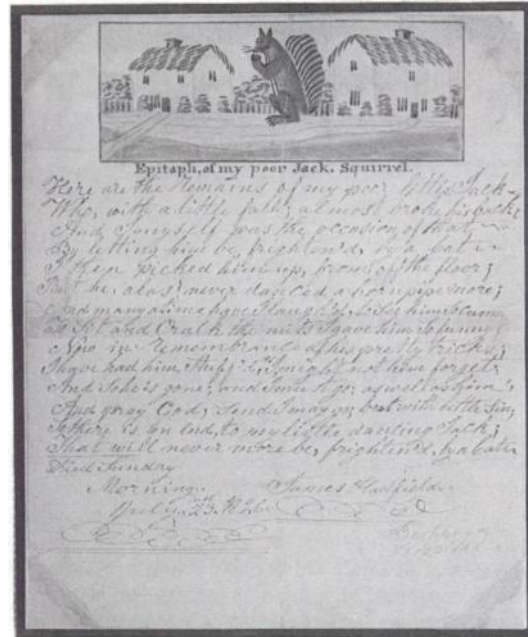 Epitaph, of my poor Jack, Squirrel.
Here are the Remains of my poor little Jack
Who, with a little fall, almost broke his back
And I myself was the occasion of that
By letting him be frighten'd, by a cat
I then picked him up, from off the floor;
But he, alas! never danced a hornpipe more;
And many a time have I laugh'd to see him so
as sit and Crack the nuts I gave him so funny
Now in remembrance of his pretty tricks,
I have had him stuff'd, I might not him forget;
And so he is gone, and I must go, as well as him;
And pray God, send I may go, but with little sin,
So there is an end, to my little dancing Jack;
That will never more be, frighten'd, by a cat
Died Sunday
Morning,
James Hadfield
July 23rd